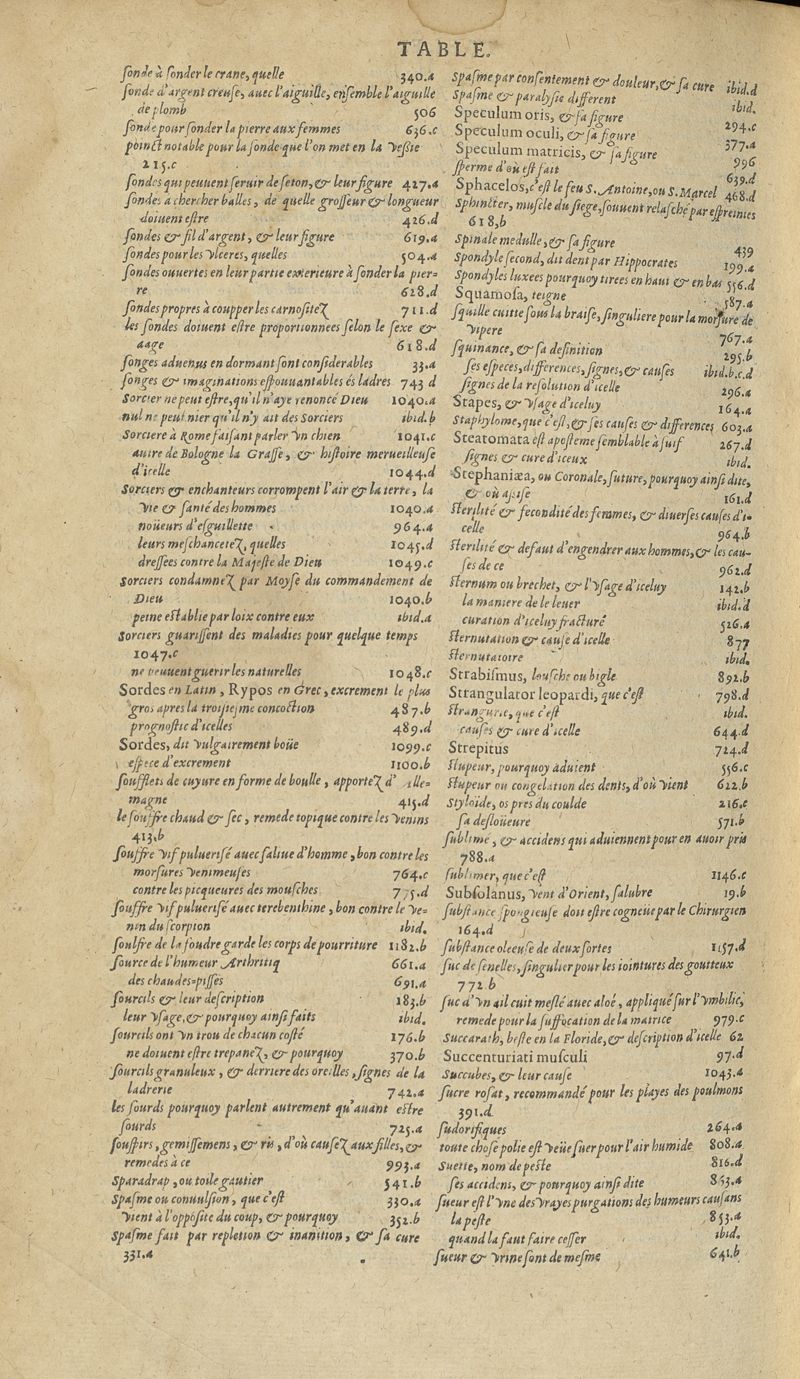 TABLE.
ſonde à ſonder le crane, quelle 340.a
ſonde d'argent creuſe, auec l'aiguille, enſemble l'aiguille
de plomb 506
ſonde pour ſonder la pierre aux femmes 636.c
poinct notable pour la ſonde que l'on met en la Veſſie
215.c
ſondes qui peuuent ſeruir de ſeton, & leur figure 427.a
ſondes a chercher balles, de quelle groſſeur & longueur
doiuent eſtre 426.d
ſondes & fil d'argent, & leur figure 619.a
ſondes pour les Vlceres, quelles 504.a
ſondes ouuertes en leur partie exterieure à ſonder la pier-
re 628.d
ſondes propres à coupper les carnoſitez 711.d
les ſondes doiuent eſtre proportionnees ſelon le ſexe &
aage 618.d
ſonges aduenus en dormant ſont conſiderables 33.a
ſonges & imaginations eſpouuantables és ladres 743 d
Sorcier ne peut eſtre, qu'il n'aye renoncé Dieu 1040.a
nul ne peut nier qu'il n'y ait des Sorciers ibid.b
Sorciere à Rome faiſant parler Vn chien 1041.c
autre de Bologne la Graſſe, & hiſtoire merueilleuſe
d'icelle 1044.d
Sorciers & enchanteurs corrompent l'air & la terre, la
Vie & ſanté des hommes 1040.a
noüeurs d'eſguillette 964.a
leurs meſchancetez, quelles 1045.d
dreſſees contre la Majeſte de Dieu 1049.c
Sorciers condamnez par Moyſe du commandement de
Dieu 1040.b
peine eſtablie par loix contre eux ibid.a
Sorciers guariſſent des maladies pour quelque temps
1047.c
ne peuuent guerir les naturelles 1048.c
Sordes en Latin, Rypos en Grec, excrement le plus
gros apres la troiſieſme concoction 487.b
prognoſtic d'icelles 489.d
Sordes, dit Vulgairement boüe 1099.c
eſpece d'excrement 1100.b
ſoufflets de cuyure en forme de boulle, apportez d'Alle-
magne 415.d
le ſouffre chaud & ſec, remede topique contre les Venins
413.b
ſouffre Vif puluerisé auec ſaliue d'homme, bon contre les
morſures Venimeuſes 764.c
contre les picqueures des mouſches 775.d
ſouffre Vif puluerisé auec terebenthine, bon contre le Ve-
nin du ſcorpion ibid.
ſoulfre de la foudre garde les corps de pourriture 1182.b
ſource de l'humeur Arthritiq 661.a
des chaudes-piſſes 691.a
ſourcils & leur deſcription 183.b
leur Vſage, & pourquoy ainſi faits ibid.
ſourcils ont Vn trou de chacun coſté 176.b
ne doiuent eſtre trepanez, & pourquoy 370.b
ſourcils granuleux, & derriere des oreilles, ſignes de la
ladrerie 742.a
les ſourds pourquoy parlent autrement qu'auant eſtre
ſourds 725.a
ſouſpirs, gemiſſemens, & ris, d'où cauſez aux filles, &
remedes à ce 993.a
Sparadrap, ou toile gautier 541.b
Spaſme ou conuulſion, que c'eſt 330.a
Vient à l'oppoſite du coup, & pourquoy 352.b
Spaſme fait par repletion & inanition, & ſa cure
331.a
Spaſme par conſentement & douleur, & ſa cure ibid.d
Spaſme & paralyſie different ibid.
Speculum oris, & ſa figure 294.c
Speculum oculi, & ſa figure 377.a
Speculum matricis, & ſa figure 996
ſperme d'où eſt fait 639.d
Sphacelos, c'eſt le feu S. Antoine, ou S. Marcel 468.d
Sphincter, muſcle du ſiege, ſouuent relaſché par eſpreintes
618.b
Spinale medulle, & ſa figure 439
Spondyle ſecond, dit dent par Hippocrates 199.a
Spondyles luxees pourquoy tirees en haut & en bas 556.d
Squamoſa, teigne 587.a
ſquille cuitte ſous la braiſe, ſinguliere pour la morſure de
Vipere 767.a
ſquinance, & ſa definition 295.b
ſes eſpeces, differences, ſignes, & cauſes ibid.b.c.d
ſignes de la reſolution d'icelle 296.a
Stapes, & Vſage d'iceluy 164.a
Staphylome, que c'eſt, & ſes cauſes & differences 603.a
Steatomata eſt apoſteme ſemblable à ſuif 267.d
ſignes & cure d'iceux ibid.
Stephaniæa, ou Coronale, ſuture, pourquoy ainſi dite,
& où aſsiſe 161.d
Sterilité & fecondité des femmes, & diuerſes cauſes d'i-
celle 964.b
Sterilité & defaut d'engendrer aux hommes, & les cau-
ſes de ce 962.d
Sternum ou brechet, & l'Vſage d'iceluy 142.b
la maniere de le leuer ibid.d
curation d'iceluy fracturé 526.a
Sternutation & cauſe d'icelle 877
Sternutatoire ibid.
Strabiſmus, louſche ou bigle 892.b
Strangulator leopardi, que c'eſt 798.d
Strangurie, que c'eſt ibid.
cauſes & cure d'icelle 644.d
Strepitus 724.d
Stupeur, pourquoy aduient 556.c
Stupeur ou congelation des dents, d'où Vient 622.b
Styloïde, os pres du coulde 216.c
ſa deſloüeure 571.b
ſublimé, & accidens qui aduiennent pour en auoir pris
788.a
ſublimer, que c'eſt 1146.c
Subſolanus, Vent d'Orient, ſalubre 19.b
ſubſtance ſpongieuſe doit eſtre cogneüe par le Chirurgien
164.d
ſubſtance oleeuſe de deux ſortes 1157.d
ſuc de ſenelles, ſingulier pour les iointures des goutteux
772.b
ſuc d'Vn ail cuit meſlé auec aloé, appliqué ſur l'Vmbilic,
remede pour la ſuffocation de la matrice 979.c
Succarath, beſte en la Floride, & deſcription d'icelle 62
Succenturiati muſculi 97.d
Succubes, & leur cauſe 1043.a
ſucre roſat, recommandé pour les playes des poulmons
391.d
ſudorifiques 264.a
toute choſe polie eſt Veüe ſuer pour l'air humide 808.a
Suette, nom de peſte 816.d
ſes accidens, & pourquoy ainſi dite 853.a
ſueur eſt l'Vne des Vrayes purgations des humeurs cauſans
la peſte 853.a
quand la faut faire ceſſer ibid.
ſueur & Vrine ſont de meſme 641.b